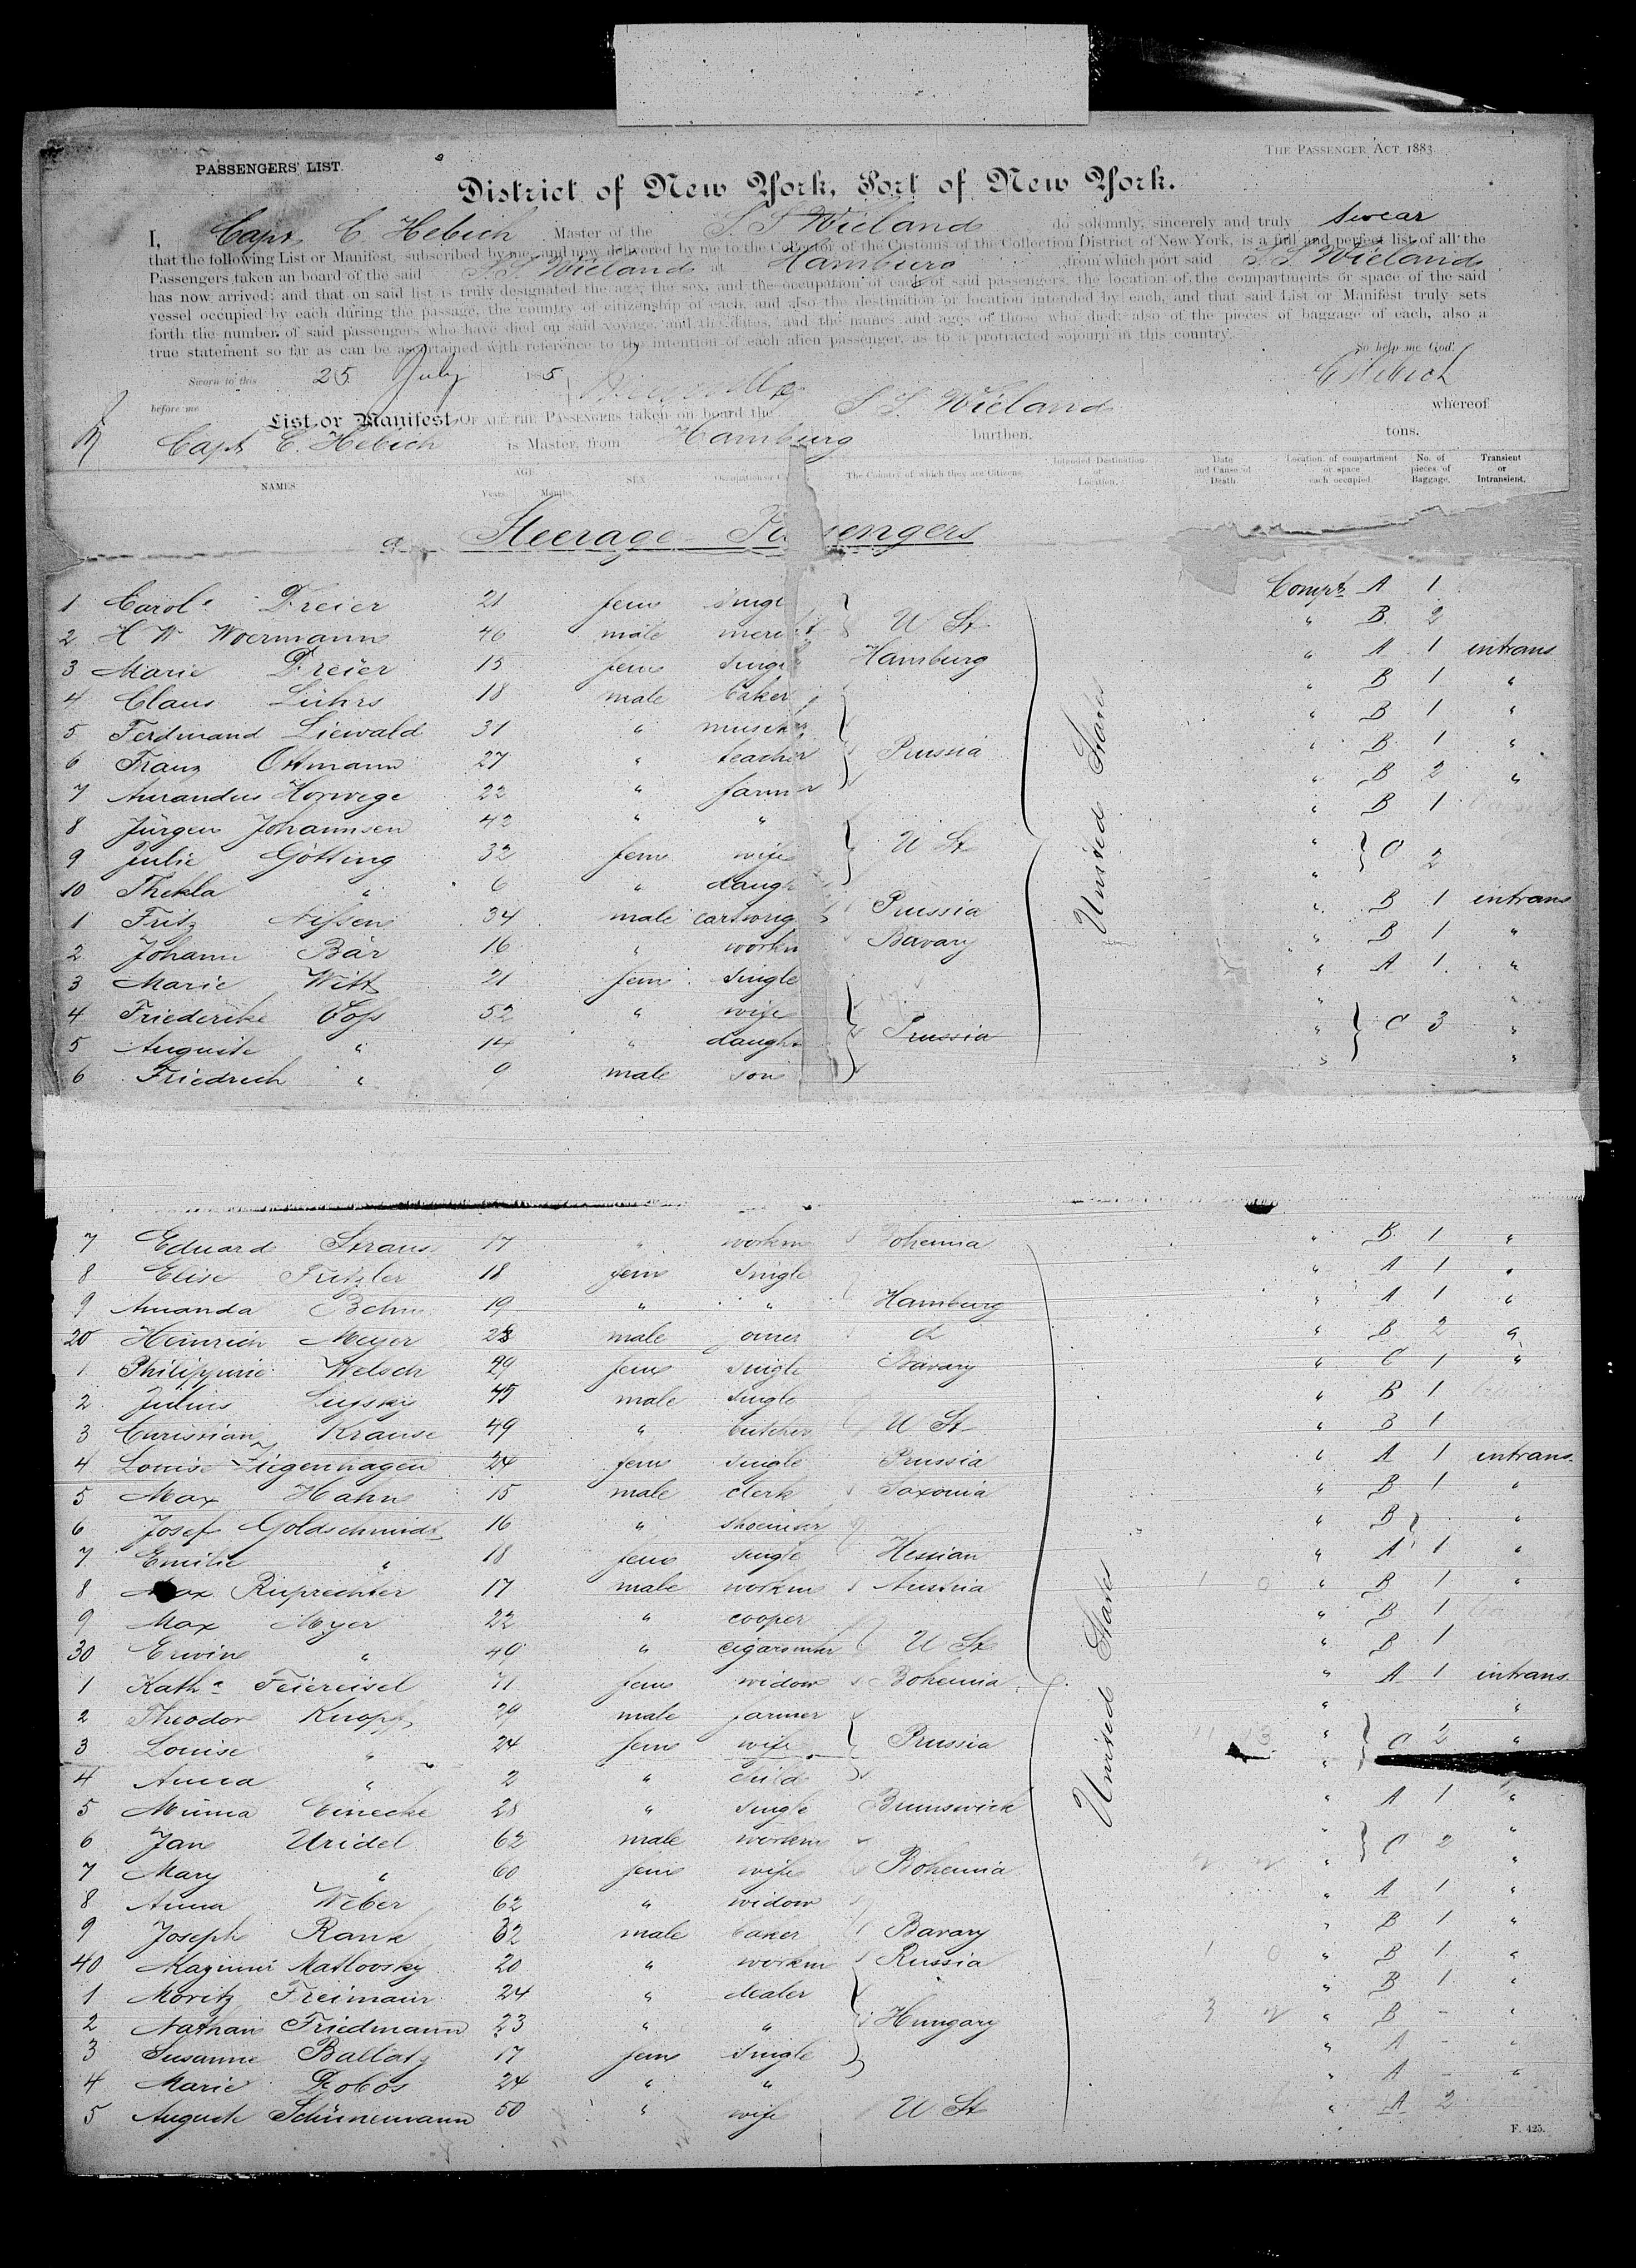 THE PASSENGER ACT 1883
PASSENGERS' LIST.
District of New York, Port of New York.
I, Capt C Hebich Master of the S. S Wieland do solemnly, sincerely and truly swear
that the following List or Manifest, subscribed by me, and now delivered by me to the Collector of the Customs of the Collection District of New York, is a full and perfect list of all the
Passengers taken on board of the said S. S Wieland at Hamburg from which port said S S Wieland
has now arrived; and that on said list is truly designated the age, the sex, and the occupation of each of said passengers, the location of the compartments or space of the said
vessel occupied by each during the passage, the country of citizenship of each, and also the destination or location intended by each, and that said List or Manifest truly sets
forth the number of said passengers who have died on said voyage, and the dates, and the names and ages of those who died; also of the pieces of baggage of each, also a
true statement so far as can be ascertained with reference to the intention of each alien passenger, as to a protracted sojourn in this country.
So help me God.
Sworn to this 25 July 1885 C Hebich
before me
List or Manifest OF ALL THE PASSENGERS taken on board the S. S. Wieland whereof
Capt C. Hebich is Master, from Hamburg burthen. tons.
NAMES. AGE. Years. Months. SEX. The Country of which they are Citizens. Intended Destination or Location. Date and Cause of Death. Location of compartment or space each occupied. No. of pieces of Baggage. Transient or Intransient.
Steerage Passengers
1 Carole Dreier 21 fem Compt A 1
2 H W Woermann 46 male U St " B 2
3 Marie Dreier 15 fem Hamburg " A 1 intrans
4 Claus Lührs 18 male baker " B 1 "
5 Ferdinand Liewald 31 " " B 1 "
6 Franz Ottmann 27 " teacher Prussia " B 1 "
7 Amandus Horwege 22 " farmer " B 2 "
8 Jürgen Johannsen 42 " " " B 1
9 Julie Götting 32 fem wife U St " C 2
10 Thekla " 6 " daugh "
1 Fritz Nissen 34 male Prussia " B 1 intrans
2 Johann Bär 16 " workm Bavary " B 1 "
3 Marie Witt 21 fem single " A 1 "
4 Friederike Voss 52 " wife " "
5 Auguste " 14 " daugh Prussia " C 3 "
6 Friedrich " 9 male son " "
United States
7 Eduard Straus 17 " workm Bohemia " B 1 "
8 Elise Fritzler 18 fem single " A 1 "
9 Amanda Behn 19 " " Hamburg " A 1 "
20 Heinrich Meyer 28 male joiner " B 2 "
1 Philippine Welsch 29 fem single Bavary " C 1 "
2 Julius 45 male single " B 1
3 Christian Krause 49 " butcher U St " B 1
4 Louise Ziegenhagen 24 fem single Prussia " A 1 intrans.
5 Max Hahn 15 male clerk Saxonia " B 1 "
6 Josef Goldschmidt 16 " " B "
7 Emilie " 18 fem single Hessian " A 1 "
8 Max Ruprechter 17 male workm Austria " B 1 "
9 Max Meyer 22 " cooper " B 1
30 Erwin " 49 " U St " B 1
1 Katha Feiereisel 71 fem widow Bohemia " A 1 intrans.
2 Theodor Knopf 29 male farmer " "
3 Louise " 24 fem wife Prussia " C 2 "
4 Anna " 2 " child "
5 Minna Einecke 28 " single Brunswick " A 1 "
6 Jan Uridel 62 male workm " C 2 "
7 Mary " 60 fem wife Bohemia " "
8 Anna Weber 62 " widow " A 1 "
9 Joseph Rank 32 male baker Bavary " B 1 "
40 Matlovsky 20 " workm Russia " B 1 "
1 Moritz Freimann 24 " dealer " B 1 "
2 Nathan Friedmann 23 " " Hungary " B - "
3 Susanne Ballatz 17 fem single " A - "
4 Marie Dobos 24 " " " A - "
5 Auguste Schünemann 50 " wife U St " A 2
United States
F. 425.